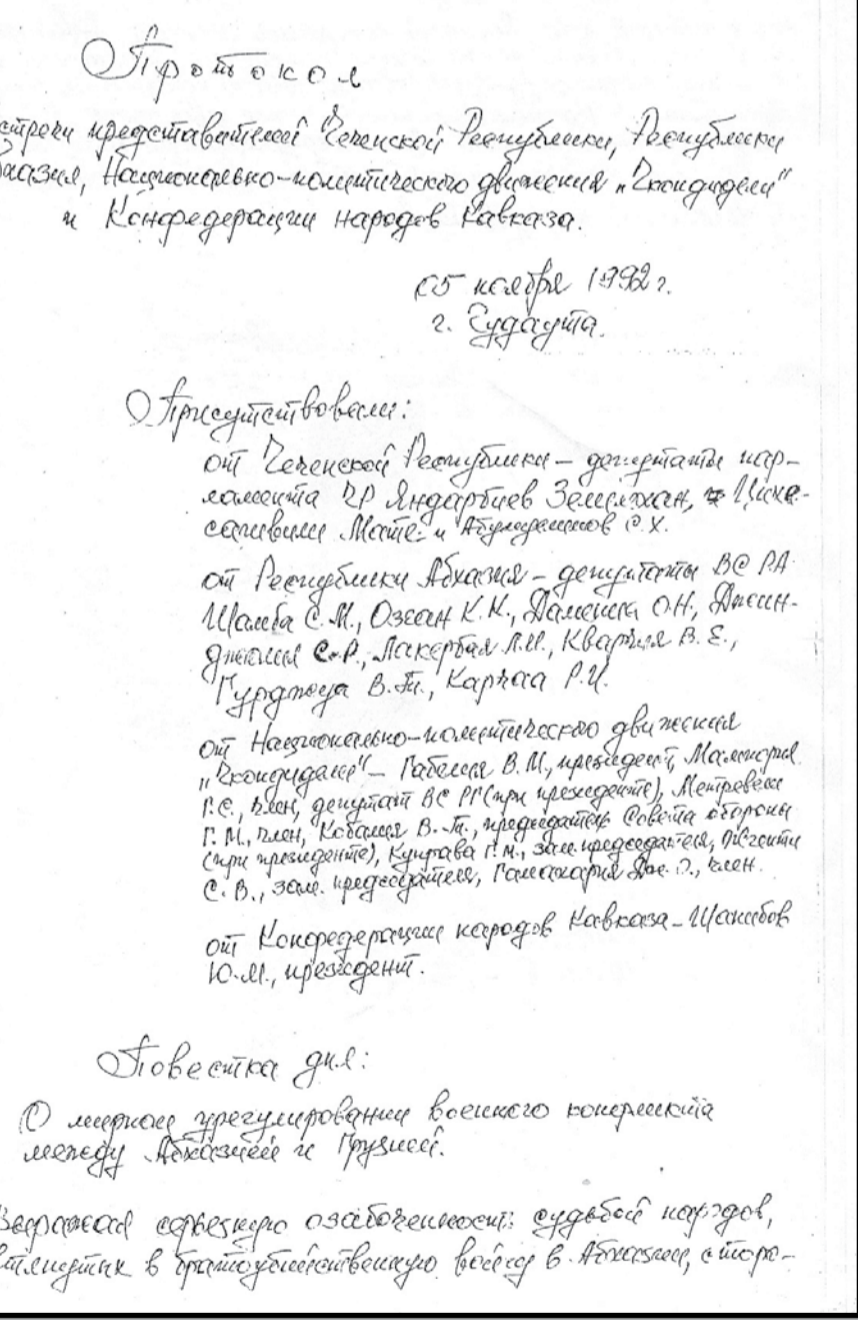 Протокол
стречи представителей Чеченской Республики, Республики
бхазия, Национально-политического движения „Чкондидели"
и Конфедерации народов Кавказа.
05 ноября 1992 г.
г. Гудаута.
Присутствовали:
от Чеченской Республики – депутаты пар-
ламента ЧР Яндарбиев Зелимхан, Цихе-
сашвили Мате и С.Х.
от Республики Абхазия – депутаты ВС РА
Шамба С.М., Озган К.К., Даменια О.Н., Джин-
джолия С.Р., Лакербая Л.И., Кварчия В.Е.,
Гурджуа В.П., Карпаа Р.И.
от Национально-политического движения
„Чкондидели" – Габелия В.М., президент,
Г.С., член, депутат ВС РГ (при президенте), Метревели
Г.М., член, Кобалия В.П., председатель Совета обороны
(при президенте), Куправа Г.М., зам. председателя, Жгенти
С.В., зам. председателя, Гамахария Дж. член.
от Конфедерации народов Кавказа – Шанибов
Ю.М., президент.
Повестка дня:
О мирном урегулировании военного конфликта
между Абхазией и Грузией.
Выражая серьезную озабоченность судьбой народов,
втянутых в братоубийственную войну в Абхазии, сторо-